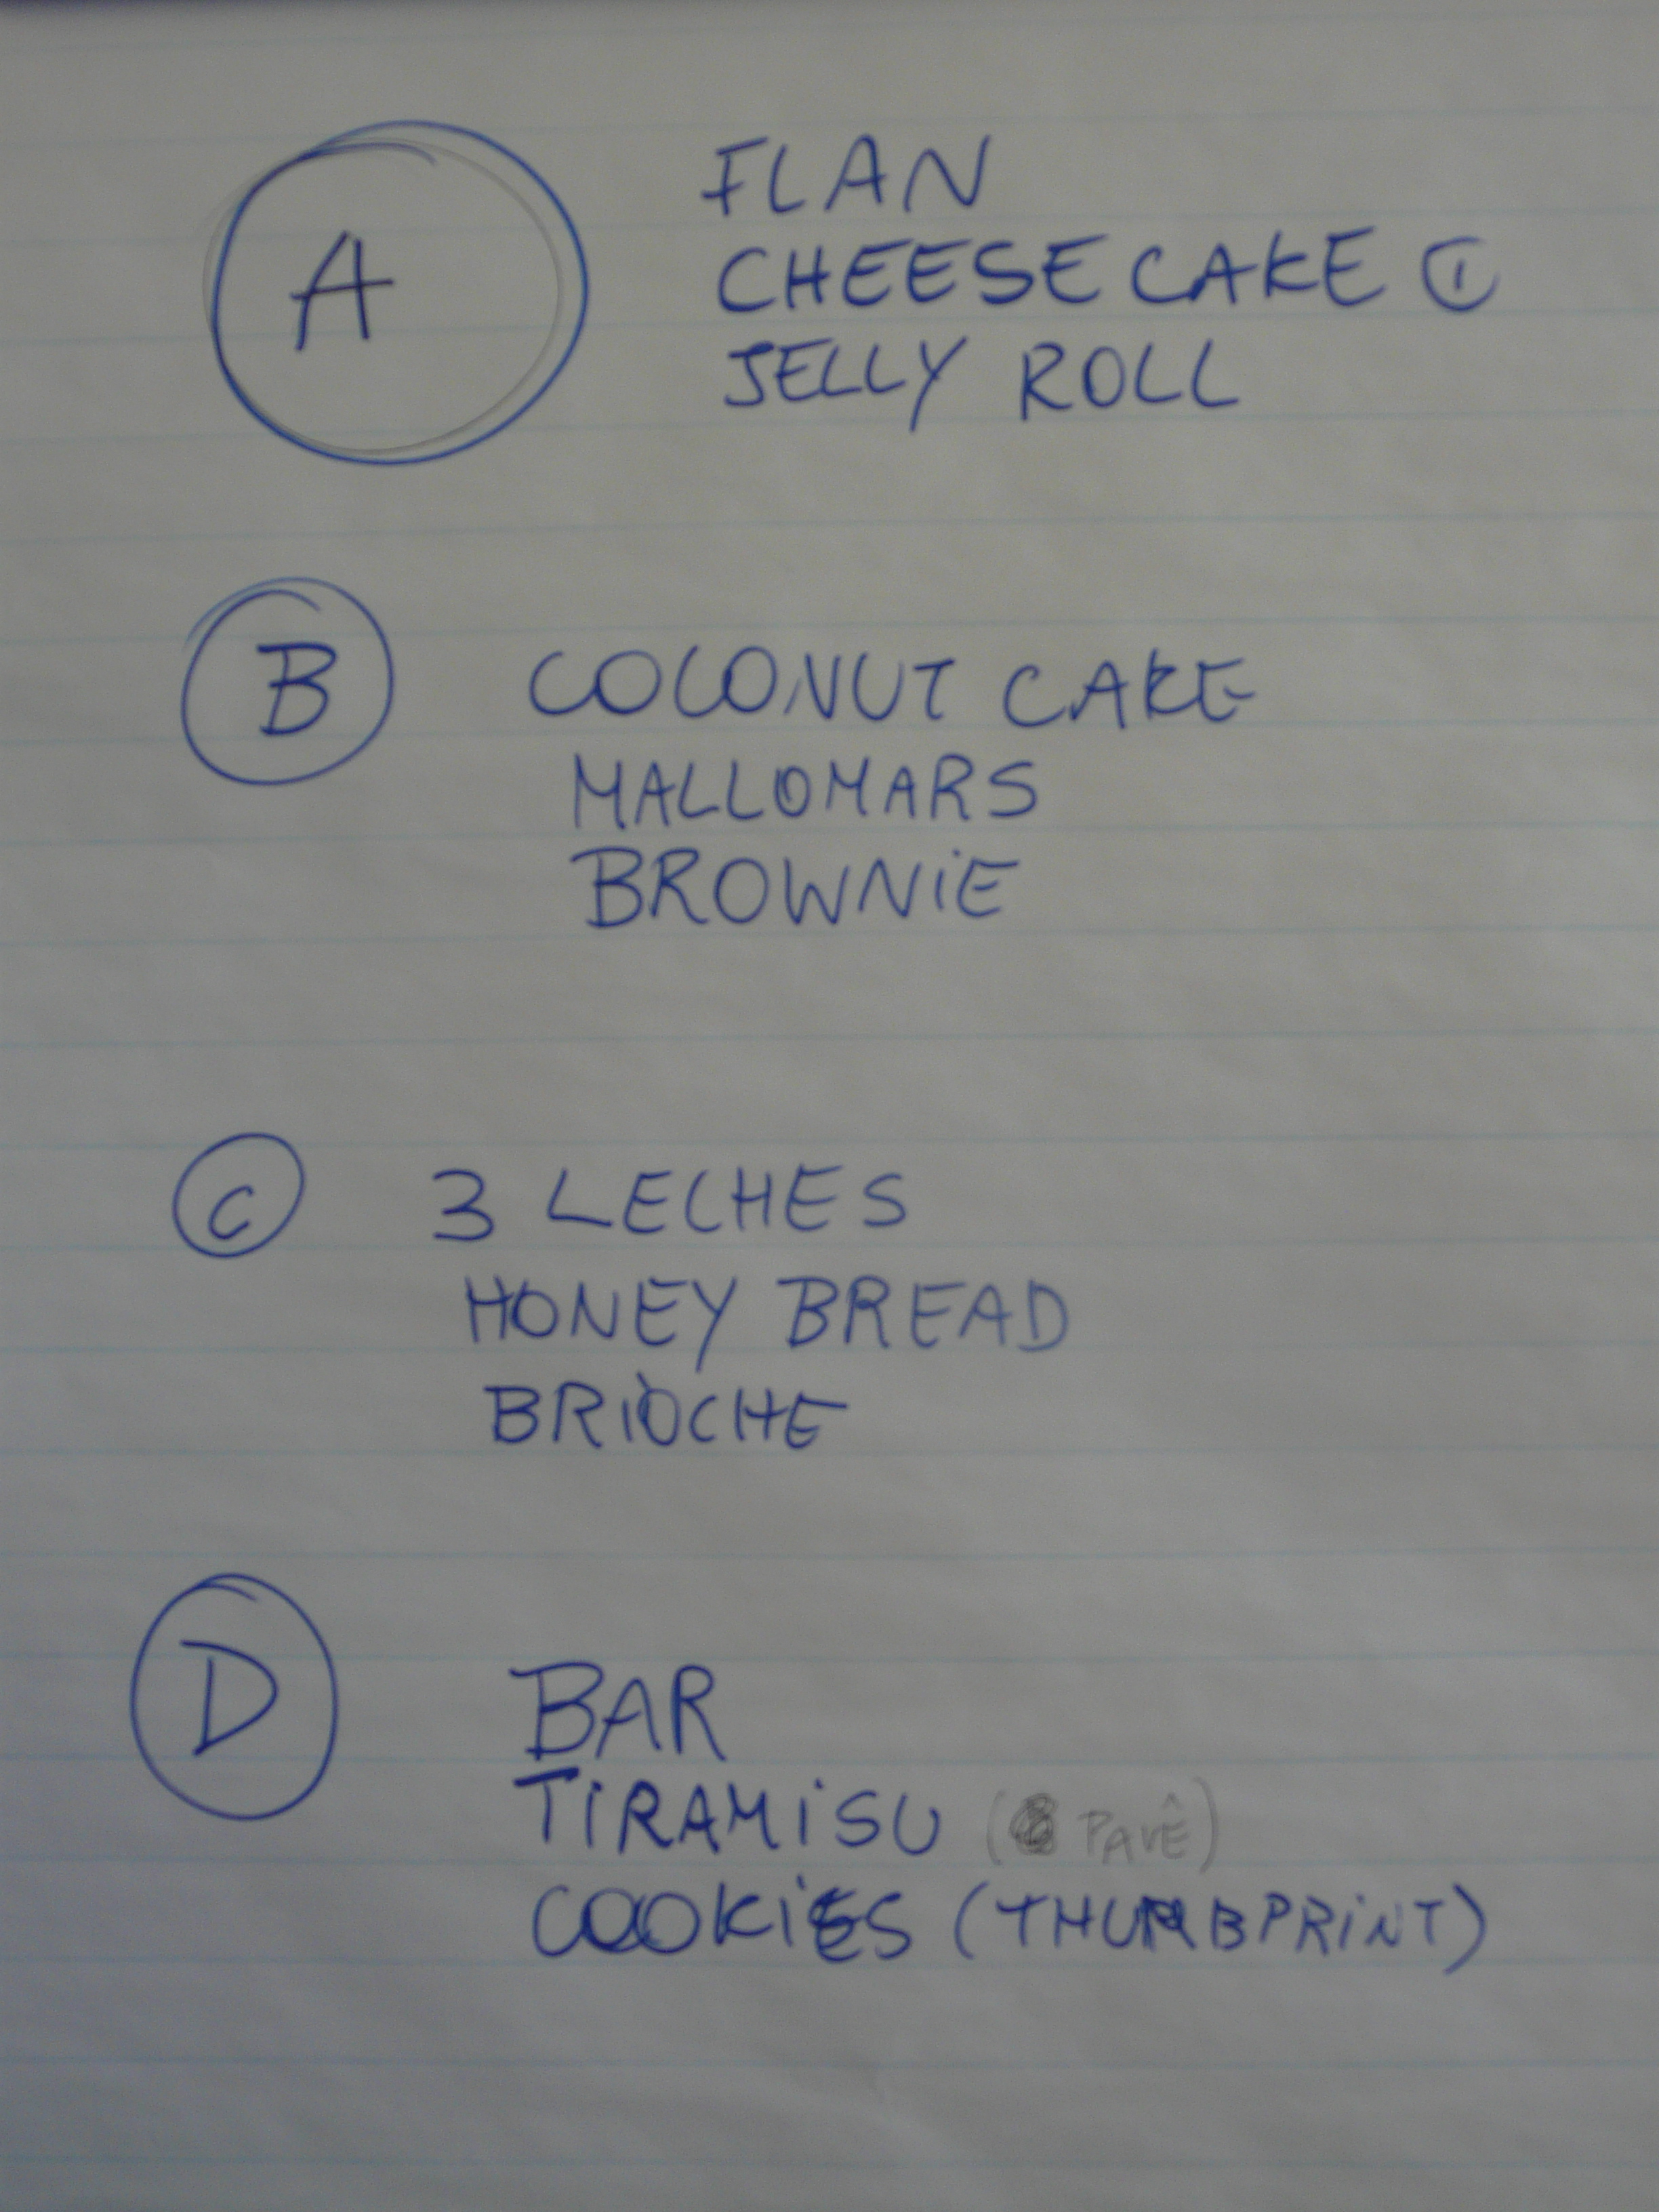 A
FLAN
CHEESECAKE ①
JELLY ROLL
B
COCONUT CAKE
MALLOMARS
BROWNIE
C
3 LECHES
HONEY BREAD
BRIOCHE
D
BAR
TIRAMISU (PAVÊ)
COOKIES (THUMBPRINT)